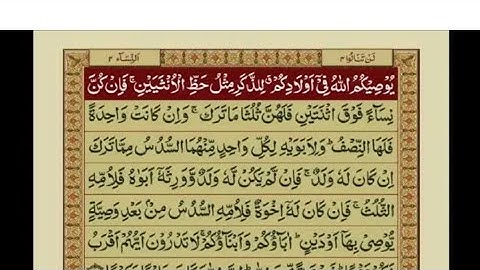 لَنْ تَنَالُوا ۴ النِّسَآء ۴
يُوْصِيْكُمُ اللّٰهُ فِيْۤ اَوْلَادِكُمْ ۗ لِلذَّكَرِ مِثْلُ حَظِّ الْاُنْثَيَيْنِ ۚ فَاِنْ كُنَّ
نِسَآءً فَوْقَ اثْنَتَيْنِ فَلَهُنَّ ثُلُثَا مَا تَرَكَ ۚ وَاِنْ كَانَتْ وَاحِدَةً
فَلَهَا النِّصْفُ ؕ وَلِاَبَوَيْهِ لِكُلِّ وَاحِدٍ مِّنْهُمَا السُّدُسُ مِمَّا تَرَكَ
اِنْ كَانَ لَهٗ وَلَدٌ ۚ فَاِنْ لَّمْ يَكُنْ لَّهٗ وَلَدٌ وَّوَرِثَهٗۤ اَبَوٰهُ فَلِاُمِّهِ
الثُّلُثُ ۚ فَاِنْ كَانَ لَهٗۤ اِخْوَةٌ فَلِاُمِّهِ السُّدُسُ مِنْۢ بَعْدِ وَصِيَّةٍ
يُّوْصِيْ بِهَاۤ اَوْ دَيْنٍ ؕ اٰبَآؤُكُمْ وَاَبْنَآؤُكُمْ ۚ لَا تَدْرُوْنَ اَيُّهُمْ اَقْرَبُ